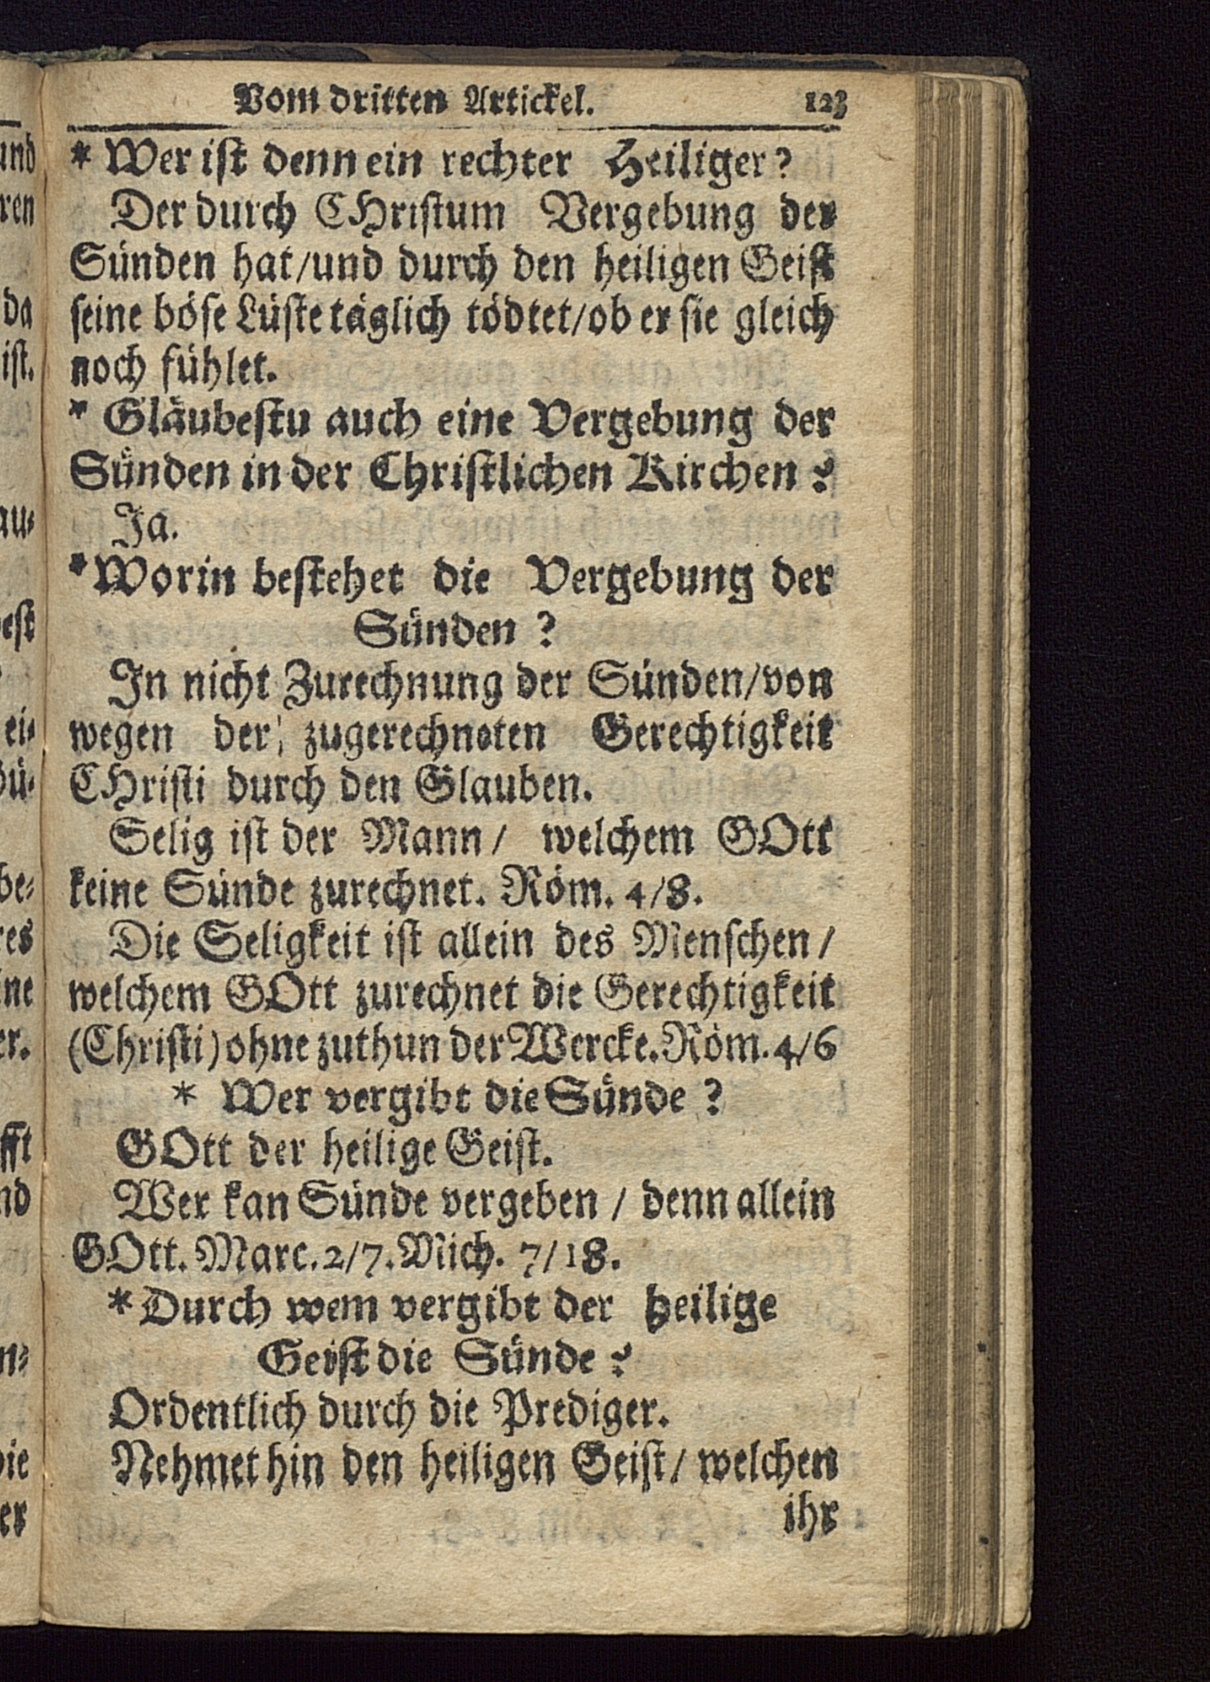 Vom dritten Artickel. 123
* Wer ist denn ein rechter Heiliger?
Der durch CHristum Vergebung der
Sünden hat/und durch den heiligen Geist
seine böse Lüste täglich tödtet/ob er sie gleich
noch fühlet.
* Gläubestu auch eine Vergebung der
Sünden in der Christlichen Kirchen?
Ja.
* Worin bestehet die Vergebung der
Sünden?
In nicht Zurechnung der Sünden/von
wegen der zugerechneten Gerechtigkeit
CHristi durch den Glauben.
Selig ist der Mann/ welchem GOtt
keine Sünde zurechnet. Röm. 4/8.
Die Seligkeit ist allein des Menschen/
welchem GOtt zurechnet die Gerechtigkeit
(Christi) ohne zuthun der Wercke. Röm. 4/6
* Wer vergibt die Sünde?
GOtt der heilige Geist.
Wer kan Sünde vergeben / denn allein
GOtt. Marc. 2/7. Mich. 7/18.
* Durch wem vergibt der heilige
Geist die Sünde?
Ordentlich durch die Prediger.
Nehmet hin den heiligen Geist/ welchen
ihr